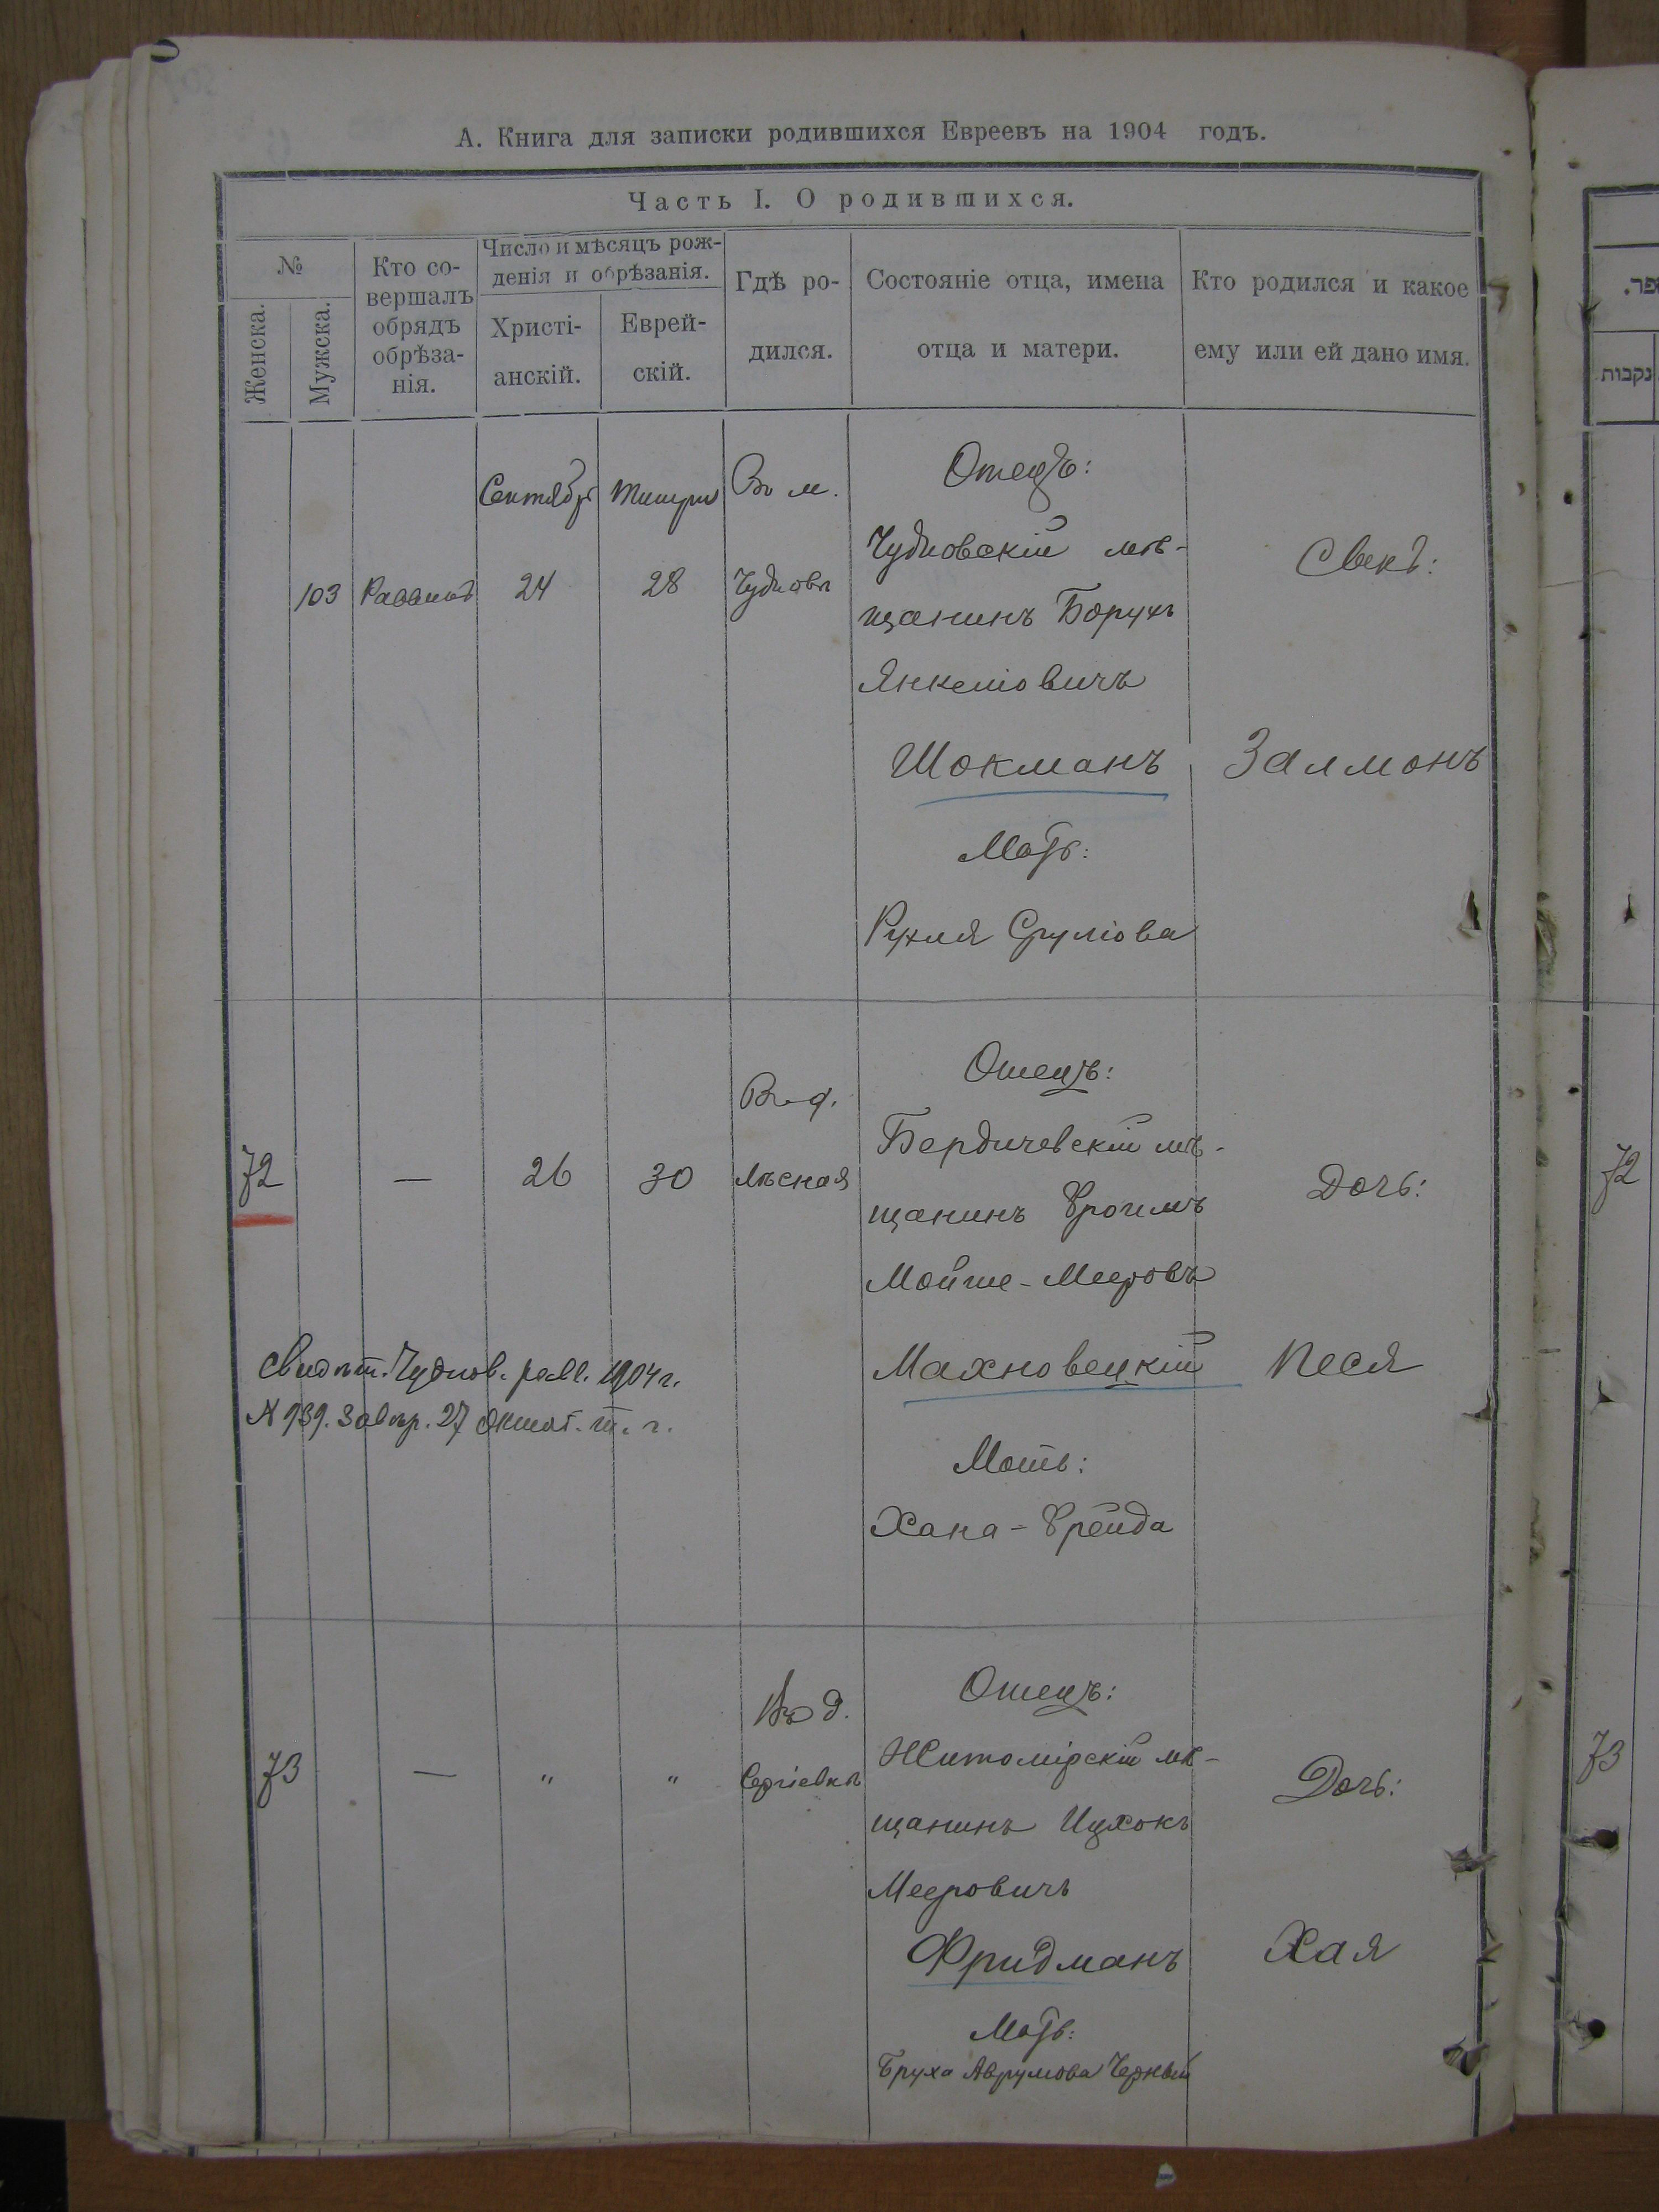 А. Книга для записки родившихся Евреевъ на 1904 годъ.
Часть I. О родившихся.
№
Женска.
Мужска.
Кто со-
вершалъ
обрядъ
обрѣза-
нія.
Число и мѣсяцъ рож-
денія и обрѣзанія.
Христі-
анскій.
Еврей-
скій.
Гдѣ ро-
дился.
Состояніе отца, имена
отца и матери.
Кто родился и какое
ему или ей дано имя.
103
Раввинъ
Сентябрь
24
Тишри
28
Въ м.
Чудновѣ
Отецъ:
Чудновскій мѣ-
щанинъ Борухъ
Янкеліовичъ
Шокманъ
Мать:
Рухля Сруліова
Сынъ:
Залмонъ
72
—
26
30
Въ д.
Лѣсная
Отецъ:
Бердичевскій мѣ-
щанинъ Фроимъ
Мойше-Мееровъ
Махновецкій
Мать:
Хана-Фрейда
Дочь:
Песя
Свидѣт. Чуднов. равв. 1904 г.
N 939. Завѣр. 27 Октяб. т. г.
73
—
"
"
Въ д.
Сергіевкѣ
Отецъ:
Житомірскій мѣ-
щанинъ Ицхокъ
Мееровичъ
Фридманъ
Мать:
Бруха Аврумова Черный
Дочь:
Хая
נקבות
72
73